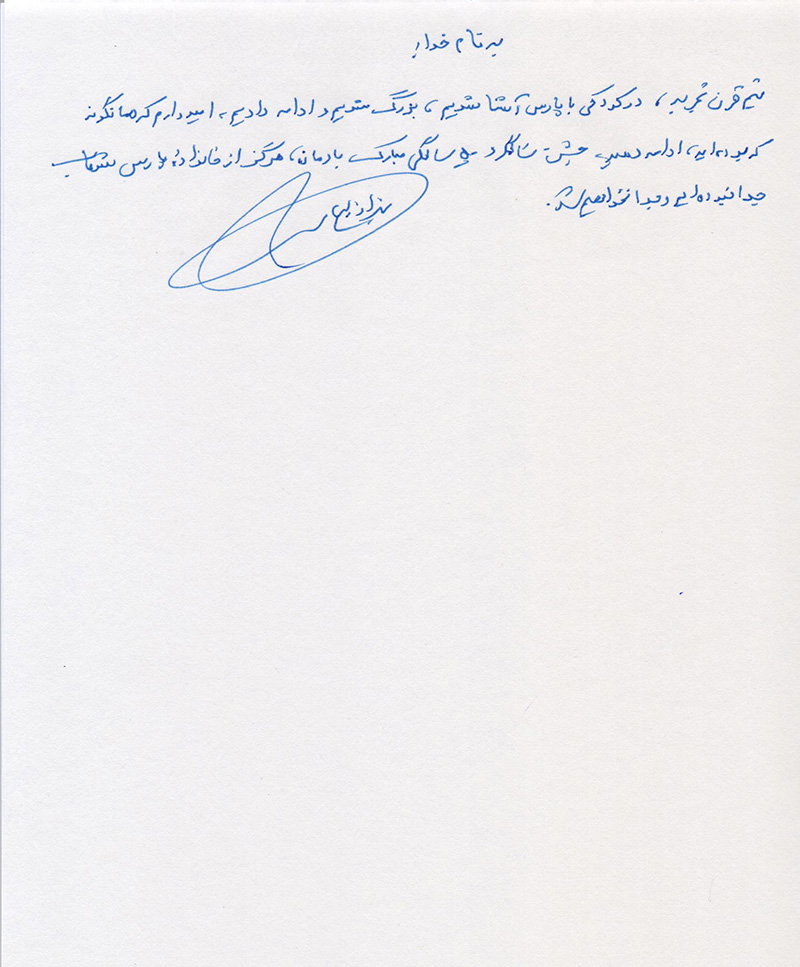 به نام خدا
نیم قرن تجربه، در کودکی با پارس آشنا شدیم، بزرگ شدیم و ادامه دادیم، امیدوارم که همانگونه
که بوده‌اید، ادامه دهید جشن سالگرد ۵۰ سالگی مبارک بادمان، هرگز از خانواده پارس
جدا نبوده‌ایم و جدا نخواهیم شد.